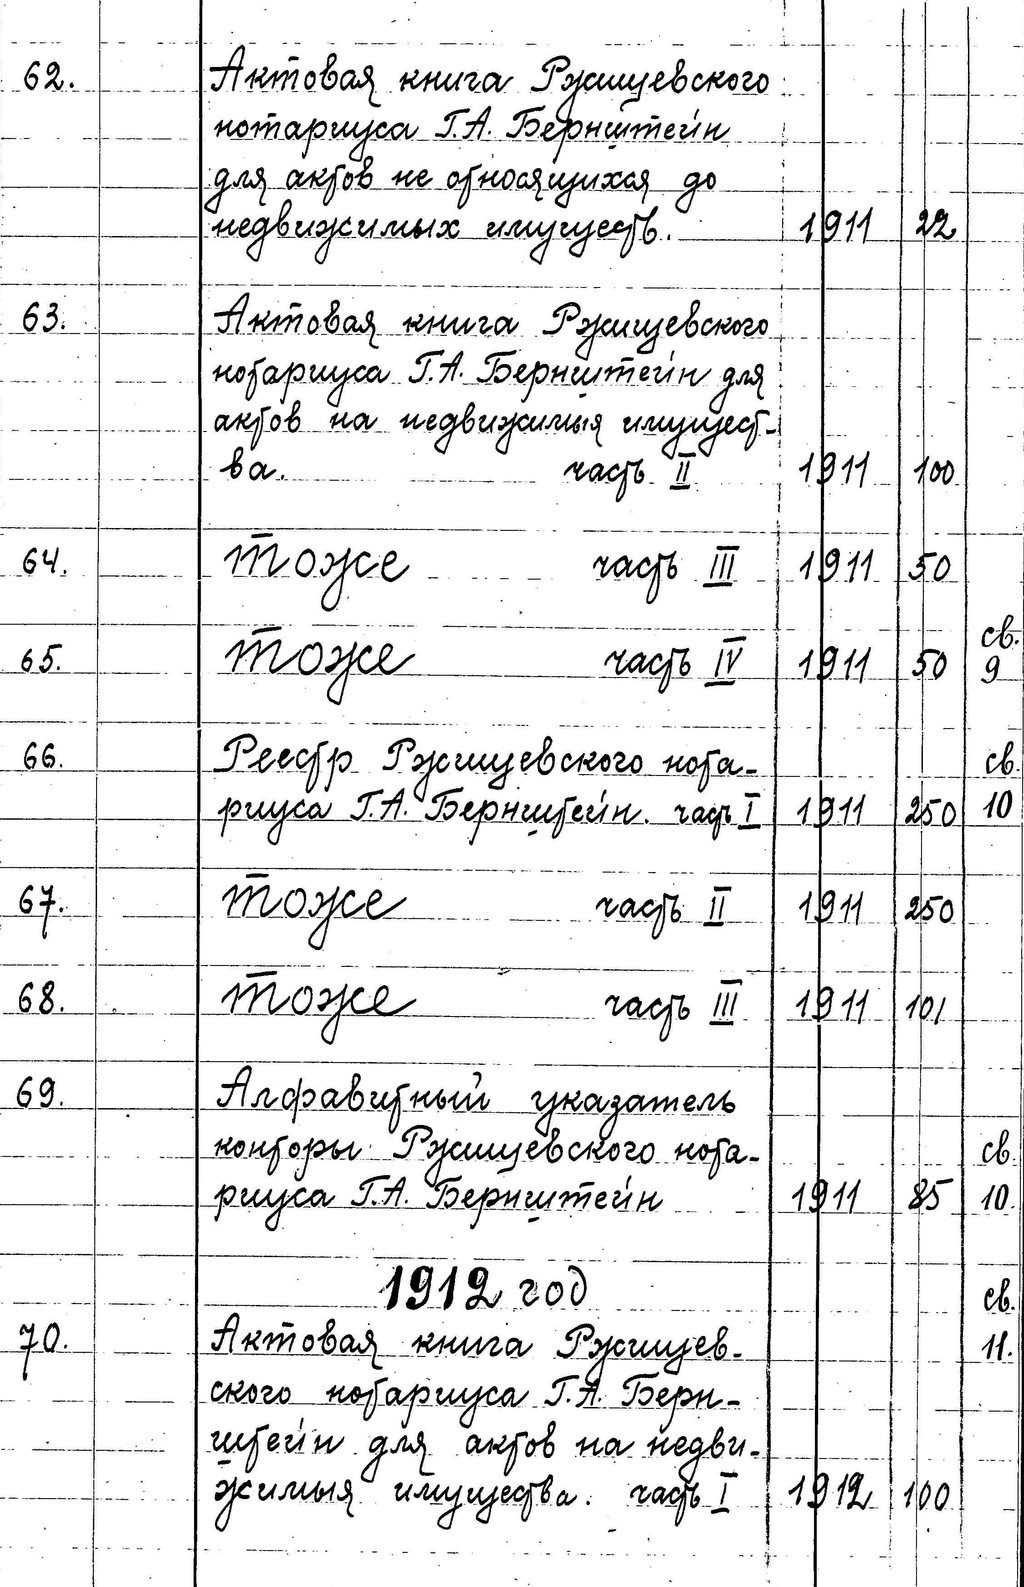 62. Актовая книга Ржищевского
нотариуса Г.А. Бернштейн
для актов не относящихся до
недвижимых имуществ. 1911 22
63. Актовая книга Ржищевского
нотариуса Г.А. Бернштейн для
актов на недвижимыя имущест-
ва. часть II 1911 100
64. тоже часть III 1911 50
св.
65. тоже часть IV 1911 50 9
66. Реестр Ржищевского нота- св.
риуса Г.А. Бернштейн. часть I 1911 250 10
67. тоже часть II 1911 250
68. тоже часть III 1911 101
69. Алфавитный указатель
конторы Ржищевского нота- св.
риуса Г.А. Бернштейн 1911 85 10.
1912 год св.
70. Актовая книга Ржищев- 11.
ского нотариуса Г.А. Берн-
штейн для актов на недви-
жимыя имущества. часть I 1912 100